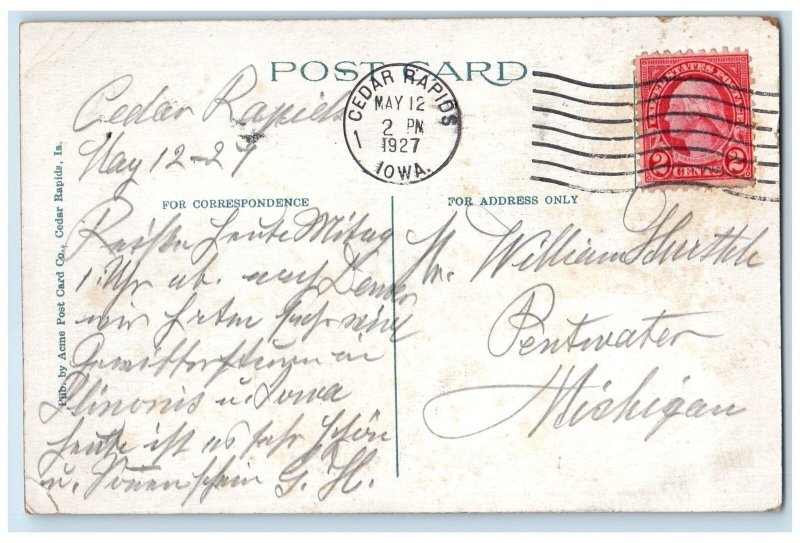 POST CARD
CEDAR RAPIDS
MAY 12
2 PM
1927
IOWA.
1
UNITED STATES POSTAGE
2 CENTS 2
Cedar Rapids
May 12-27
FOR CORRESPONDENCE
FOR ADDRESS ONLY
Pub. by Acme Post Card Co., Cedar Rapids, Ia.
heute Mitag
1 Uhr ab. nach Denver
wir hatten sehr viel
Gewittersturm in
Ilinonis u. Iowa
heute ist es sehr schön
u. Sonnenschein G. H.
Mr. William
Pentwater
Michigan